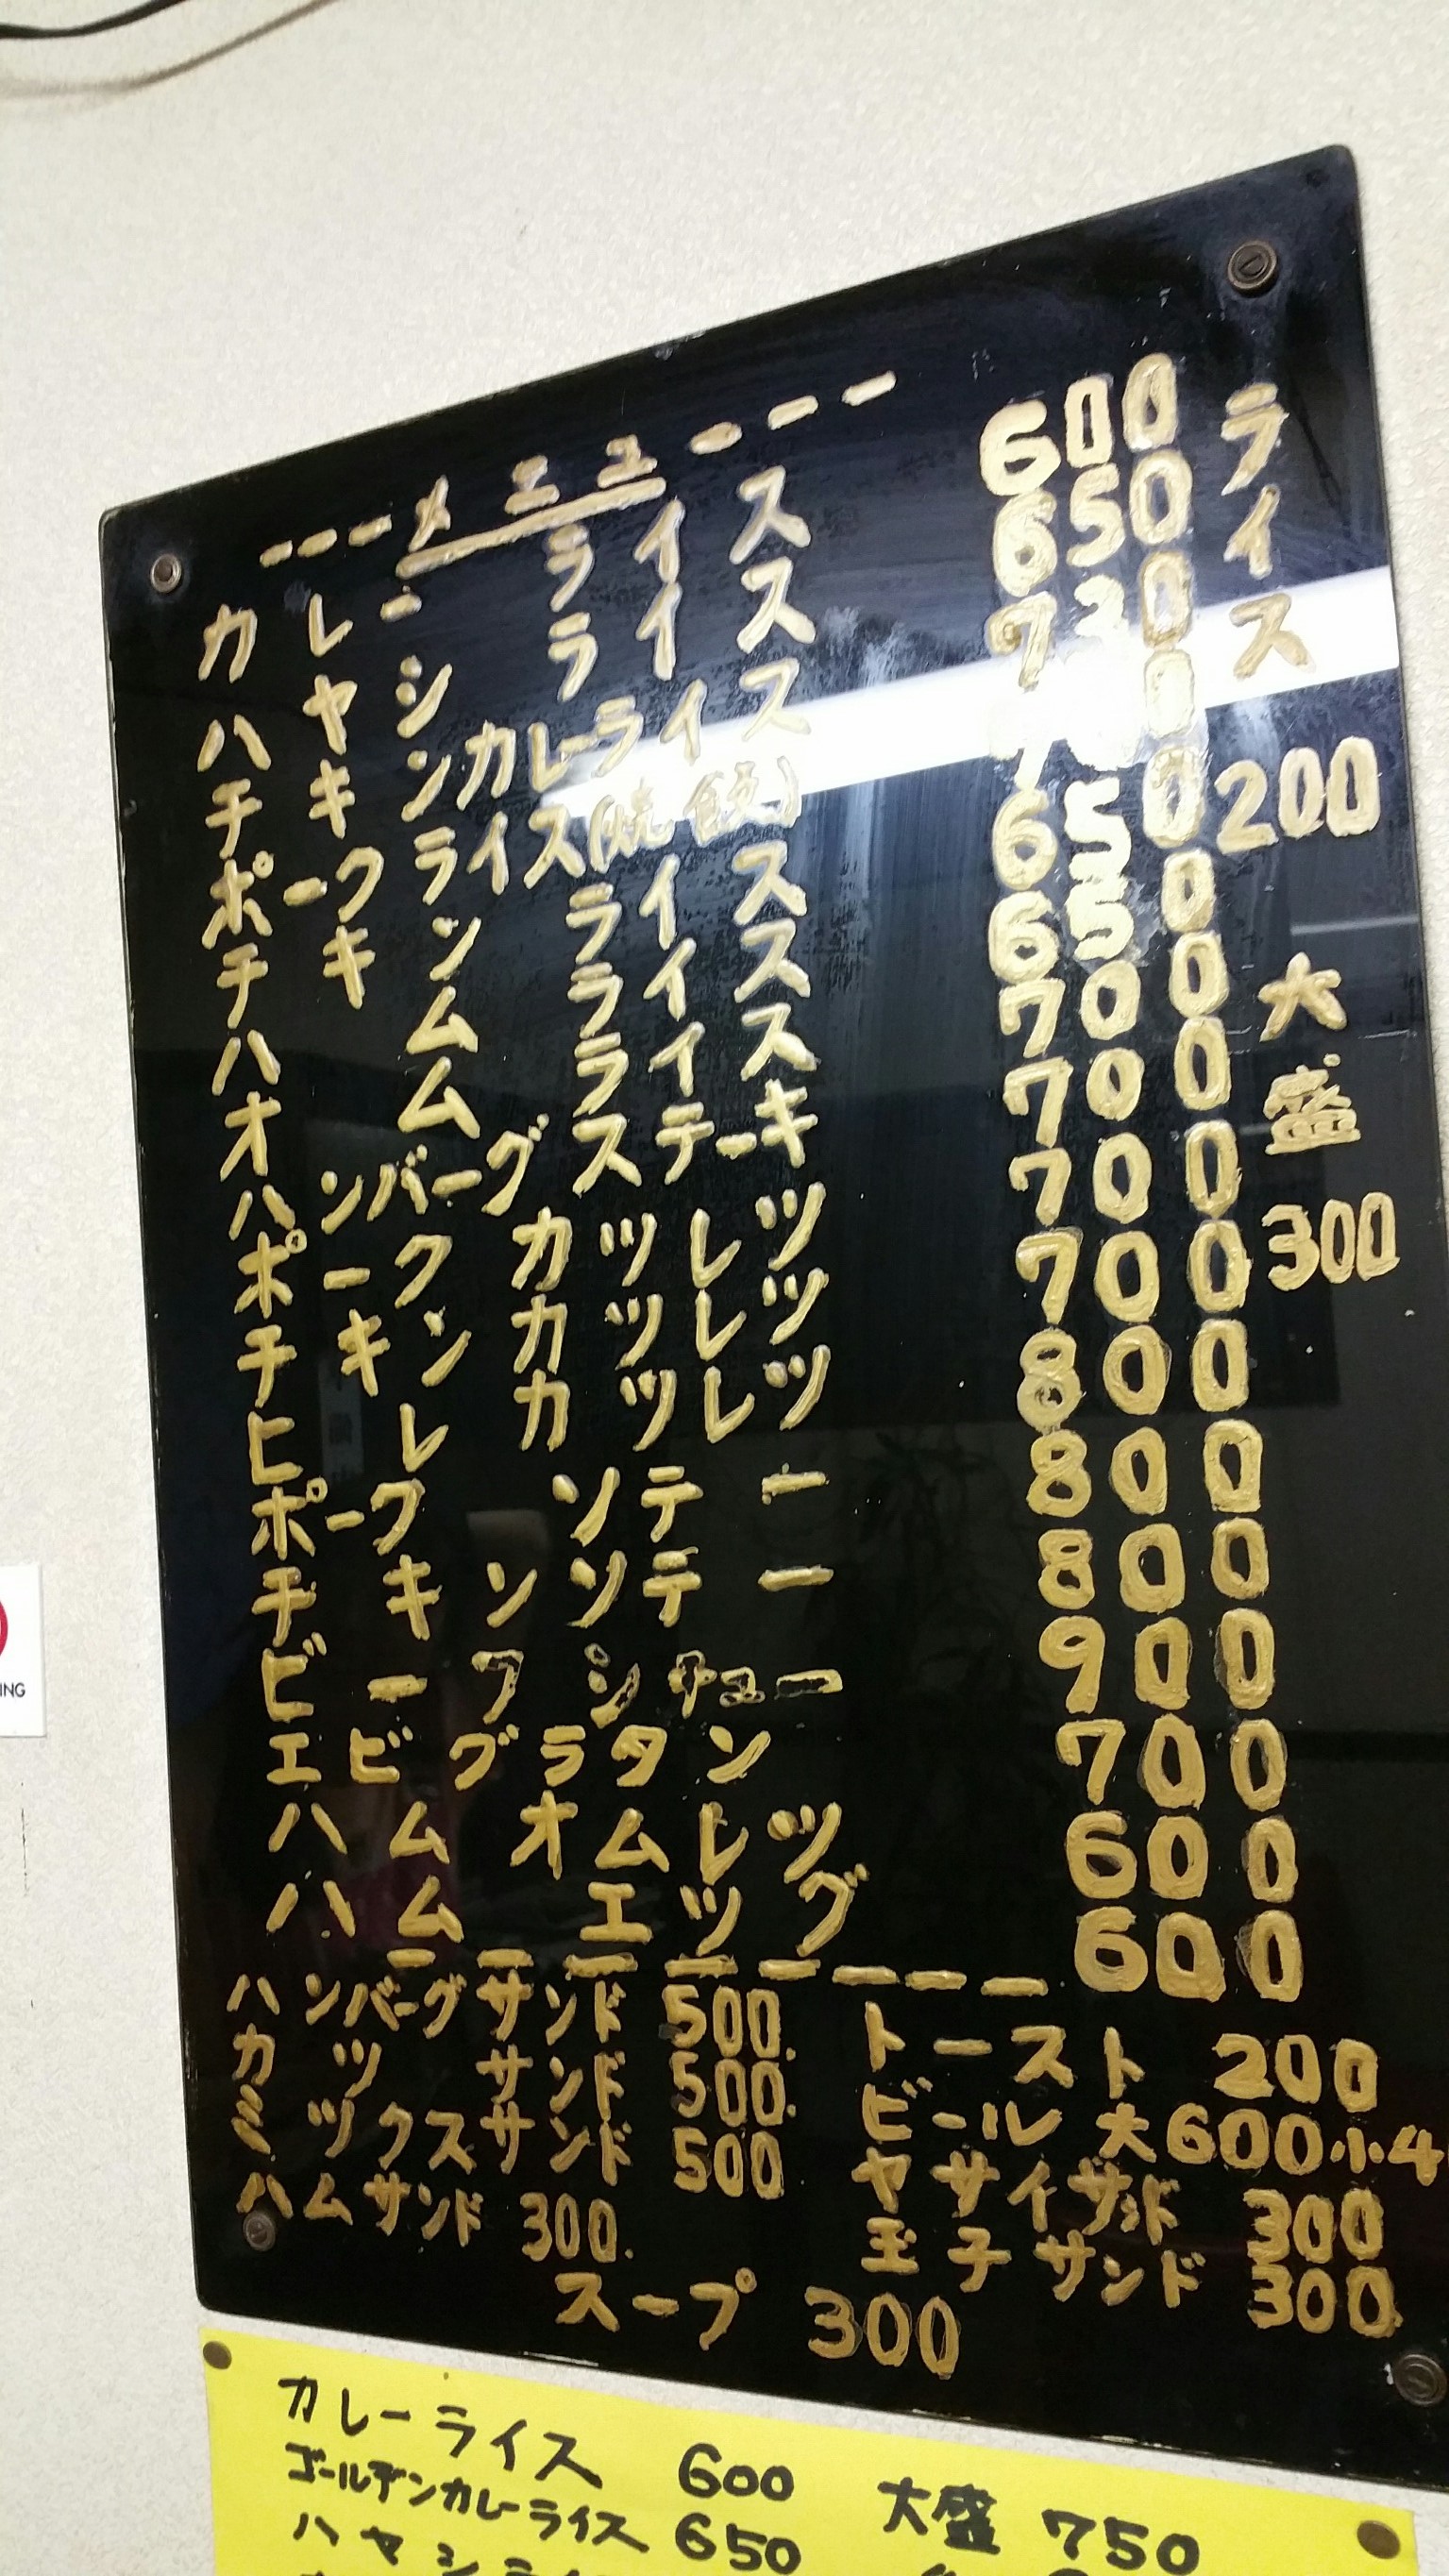 ---メニュー---
カレーライス 600
ハヤシライス 650
チキンカレーライス
ポークライス(焼飯)
チキンライス 650
ハムライス 650
オムライス 700
ハンバーグステーキ 700
ポークカツレツ 700
チキンカツレツ 700
ヒレカツレツ 800
ポークソテー 800
チキンソテー 800
ビーフシチュー 900
エビグラタン 700
ハムオムレツ 600
ハムエツグ 600
ライス 200
大盛 300
ハンバーグサンド 500.
カツサンド 500.
ミツクスサンド 500
ハムサンド 300.
トースト 200
ビール大600小4
ヤサイサンド 300
玉子サンド 300
スープ 300
カレーライス 600 大盛 750
ゴールデンカレーライス 650
ハヤシライ
ING